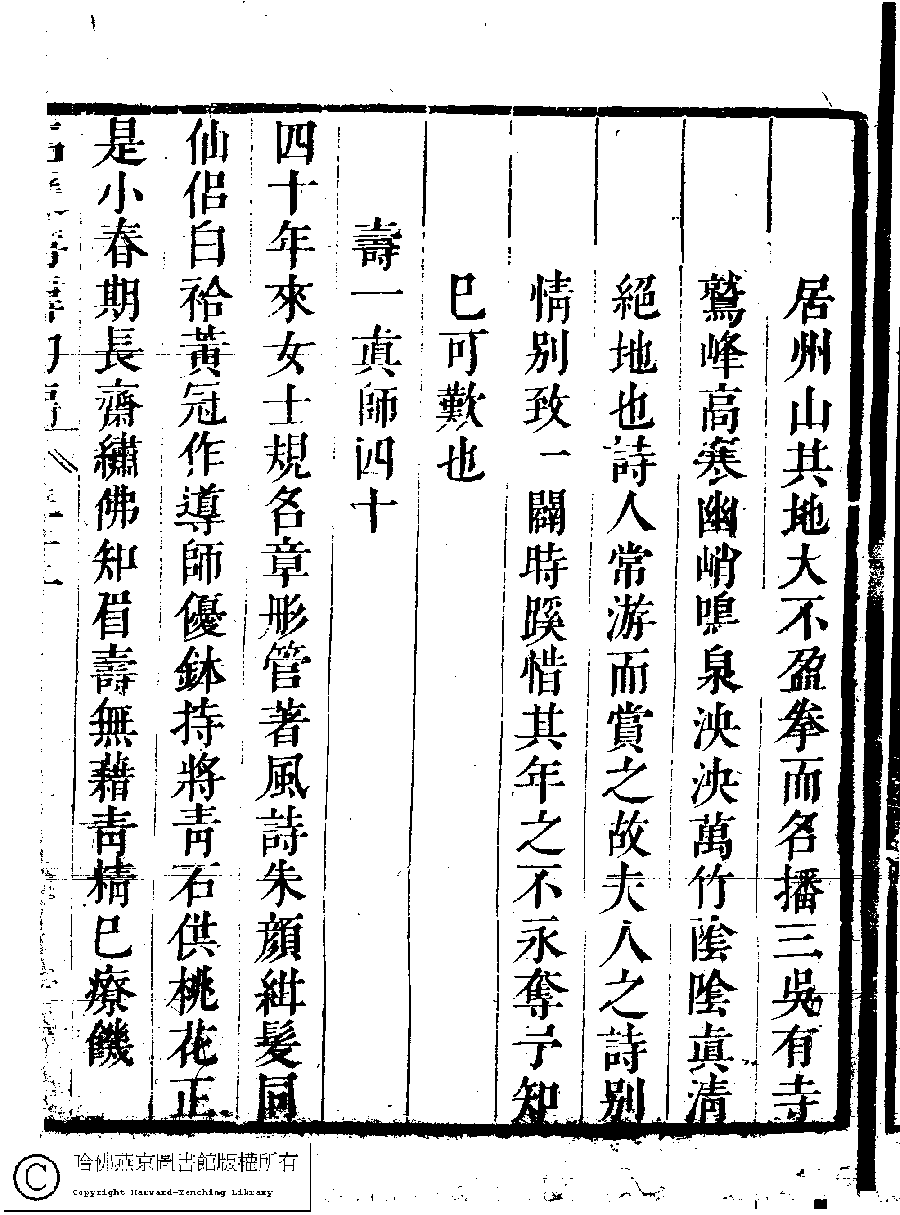 居州山共地大不盈拳而名播三吳有寺
鷲峰高寒幽峭鳴泉泱泱萬竹陰陰真清
絕地也詩人常游而賞之故夫人之詩別
情別致一闢時蹊惜其年之不永奪予知
巳可歎也
壽一真師四十
四十年來女士規名章彤管著風詩朱顏紺髮同
仙侶白袷黃冠作導師優鉢持將青石供桃花正
是小春期長齋繡佛知眉壽無藉青精巳療饑
哈佛燕京圖書館版權所有
Copyright Harvard-Yenching Library